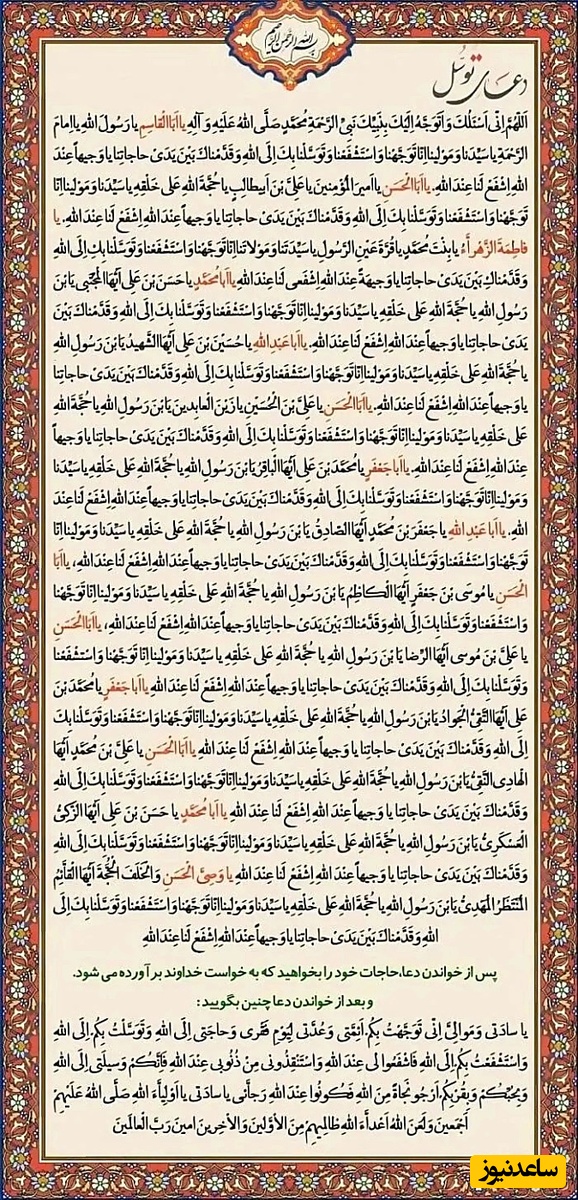 بسم الله الرحمن الرحیم
دعای توسل
اَللّهُمَّ اِنّی اَسْئَلُكَ وَاَتَوَجَّهُ اِلَيْكَ بِنَبِيِّكَ نَبِيِّ الرَّحْمَةِ مُحَمَّدٍ صَلَّى اللهُ عَلَيْهِ وَآلِهِ يا اَبَا الْقاسِمِ يا رَسُولَ اللهِ يا اِمامَ
الرَّحْمَةِ يا سَيِّدَنا وَمَوْلينا اِنّا تَوَجَّهْنا وَاسْتَشْفَعْنا وَتَوَسَّلْنا بِكَ اِلَى اللهِ وَقَدَّمْناكَ بَيْنَ يَدَىْ حاجاتِنا يا وَجيهاً عِنْدَ
اللهِ اِشْفَعْ لَنا عِنْدَ اللهِ. يا اَبَا الْحَسَنِ يا اَميرَ الْمُؤْمِنينَ يا عَلِىَّ بْنَ اَبيطالِبٍ يا حُجَّةَ اللهِ عَلى خَلْقِهِ يا سَيِّدَنا وَمَوْلينا اِنّا
تَوَجَّهْنا وَاسْتَشْفَعْنا وَتَوَسَّلْنا بِكَ اِلَى اللهِ وَقَدَّمْناكَ بَيْنَ يَدَىْ حاجاتِنا يا وَجيهاً عِنْدَ اللهِ اِشْفَعْ لَنا عِنْدَ اللهِ. يا
فاطِمَةَ الزَّهْراءُ يا بِنْتَ مُحَمَّدٍ يا قُرَّةَ عَيْنِ الرَّسُولِ يا سَيِّدَتَنا وَمَوْلاتَنا اِنّا تَوَجَّهْنا وَاسْتَشْفَعْنا وَتَوَسَّلْنا بِكِ اِلَى اللهِ
وَقَدَّمْناكِ بَيْنَ يَدَىْ حاجاتِنا يا وَجيهَةً عِنْدَ اللهِ اِشْفَعى لَنا عِنْدَ اللهِ يا اَبا مُحَمَّدٍ يا حَسَنَ بْنَ عَلِىٍّ اَيُّهَا الْمُجْتَبى يَا بْنَ
رَسُولِ اللهِ يا حُجَّةَ اللهِ عَلى خَلْقِهِ يا سَيِّدَنا وَمَوْلينا اِنّا تَوَجَّهْنا وَاسْتَشْفَعْنا وَتَوَسَّلْنا بِكَ اِلَى اللهِ وَقَدَّمْناكَ بَيْنَ
يَدَىْ حاجاتِنا يا وَجيهاً عِنْدَ اللهِ اِشْفَعْ لَنا عِنْدَ اللهِ. يا اَبا عَبْدِ اللهِ يا حُسَيْنَ بْنَ عَلِىٍّ اَيُّهَا الشَّهيدُ يَا بْنَ رَسُولِ اللهِ
يا حُجَّةَ اللهِ عَلى خَلْقِهِ يا سَيِّدَنا وَمَوْلينا اِنّا تَوَجَّهْنا وَاسْتَشْفَعْنا وَتَوَسَّلْنا بِكَ اِلَى اللهِ وَقَدَّمْناكَ بَيْنَ يَدَىْ حاجاتِنا
يا وَجيهاً عِنْدَ اللهِ اِشْفَعْ لَنا عِنْدَ اللهِ. يا اَبَا الْحَسَنِ يا عَلِىَّ بْنَ الْحُسَيْنِ يا زَيْنَ الْعابِدينَ يَا بْنَ رَسُولِ اللهِ يا حُجَّةَ اللهِ
عَلى خَلْقِهِ يا سَيِّدَنا وَمَوْلينا اِنّا تَوَجَّهْنا وَاسْتَشْفَعْنا وَتَوَسَّلْنا بِكَ اِلَى اللهِ وَقَدَّمْناكَ بَيْنَ يَدَىْ حاجاتِنا يا وَجيهاً
عِنْدَ اللهِ اِشْفَعْ لَنا عِنْدَ اللهِ. يا اَبا جَعْفَرٍ يا مُحَمَّدَ بْنَ عَلِىٍّ اَيُّهَا الْباقِرُ يَا بْنَ رَسُولِ اللهِ يا حُجَّةَ اللهِ عَلى خَلْقِهِ يا سَيِّدَنا
وَمَوْلينا اِنّا تَوَجَّهْنا وَاسْتَشْفَعْنا وَتَوَسَّلْنا بِكَ اِلَى اللهِ وَقَدَّمْناكَ بَيْنَ يَدَىْ حاجاتِنا يا وَجيهاً عِنْدَ اللهِ اِشْفَعْ لَنا عِنْدَ
اللهِ. يا اَبا عَبْدِ اللهِ يا جَعْفَرَ بْنَ مُحَمَّدٍ اَيُّهَا الصّادِقُ يَا بْنَ رَسُولِ اللهِ يا حُجَّةَ اللهِ عَلى خَلْقِهِ يا سَيِّدَنا وَمَوْلينا اِنّا
تَوَجَّهْنا وَاسْتَشْفَعْنا وَتَوَسَّلْنا بِكَ اِلَى اللهِ وَقَدَّمْناكَ بَيْنَ يَدَىْ حاجاتِنا يا وَجيهاً عِنْدَ اللهِ اِشْفَعْ لَنا عِنْدَ اللهِ، يا اَبَا
الْحَسَنِ يا مُوسَى بْنَ جَعْفَرٍ اَيُّهَا الْكاظِمُ يَا بْنَ رَسُولِ اللهِ يا حُجَّةَ اللهِ عَلى خَلْقِهِ يا سَيِّدَنا وَمَوْلينا اِنّا تَوَجَّهْنا
وَاسْتَشْفَعْنا وَتَوَسَّلْنا بِكَ اِلَى اللهِ وَقَدَّمْناكَ بَيْنَ يَدَىْ حاجاتِنا يا وَجيهاً عِنْدَ اللهِ اِشْفَعْ لَنا عِنْدَ اللهِ، يا اَبَا الْحَسَنِ
يا عَلِىَّ بْنَ مُوسى اَيُّهَا الرِّضا يَا بْنَ رَسُولِ اللهِ يا حُجَّةَ اللهِ عَلى خَلْقِهِ يا سَيِّدَنا وَمَوْلينا اِنّا تَوَجَّهْنا وَاسْتَشْفَعْنا
وَتَوَسَّلْنا بِكَ اِلَى اللهِ وَقَدَّمْناكَ بَيْنَ يَدَىْ حاجاتِنا يا وَجيهاً عِنْدَ اللهِ اِشْفَعْ لَنا عِنْدَ اللهِ يا اَبا جَعْفَرٍ يا مُحَمَّدَ بْنَ
عَلِىٍّ اَيُّهَا التَّقِىُّ الْجَوادُ يَا بْنَ رَسُولِ اللهِ يا حُجَّةَ اللهِ عَلى خَلْقِهِ يا سَيِّدَنا وَمَوْلينا اِنّا تَوَجَّهْنا وَاسْتَشْفَعْنا وَتَوَسَّلْنا بِكَ
اِلَى اللهِ وَقَدَّمْناكَ بَيْنَ يَدَىْ حاجاتِنا يا وَجيهاً عِنْدَ اللهِ اِشْفَعْ لَنا عِنْدَ اللهِ يا اَبَا الْحَسَنِ يا عَلِىَّ بْنَ مُحَمَّدٍ اَيُّهَا
الْهادِى النَّقِىُّ يَا بْنَ رَسُولِ اللهِ يا حُجَّةَ اللهِ عَلى خَلْقِهِ يا سَيِّدَنا وَمَوْلينا اِنّا تَوَجَّهْنا وَاسْتَشْفَعْنا وَتَوَسَّلْنا بِكَ اِلَى اللهِ
وَقَدَّمْناكَ بَيْنَ يَدَىْ حاجاتِنا يا وَجيهاً عِنْدَ اللهِ اِشْفَعْ لَنا عِنْدَ اللهِ يا اَبا مُحَمَّدٍ يا حَسَنَ بْنَ عَلِىٍّ اَيُّهَا الزَّكِىُّ
الْعَسْكَرِىُّ يَا بْنَ رَسُولِ اللهِ يا حُجَّةَ اللهِ عَلى خَلْقِهِ يا سَيِّدَنا وَمَوْلينا اِنّا تَوَجَّهْنا وَاسْتَشْفَعْنا وَتَوَسَّلْنا بِكَ اِلَى اللهِ
وَقَدَّمْناكَ بَيْنَ يَدَىْ حاجاتِنا يا وَجيهاً عِنْدَ اللهِ اِشْفَعْ لَنا عِنْدَ اللهِ يا وَصِىَّ الْحَسَنِ وَالْخَلَفَ الْحُجَّةَ اَيُّهَا الْقائِمُ
الْمُنْتَظَرُ الْمَهْدِىُّ يَا بْنَ رَسُولِ اللهِ يا حُجَّةَ اللهِ عَلى خَلْقِهِ يا سَيِّدَنا وَمَوْلينا اِنّا تَوَجَّهْنا وَاسْتَشْفَعْنا وَتَوَسَّلْنا بِكَ اِلَى
اللهِ وَقَدَّمْناكَ بَيْنَ يَدَىْ حاجاتِنا يا وَجيهاً عِنْدَ اللهِ اِشْفَعْ لَنا عِنْدَ اللهِ
پس از خواندن دعا، حاجات خود را بخواهید که به خواست خداوند برآورده می شود.
و بعد از خواندن دعا چنین بگویید:
يا سادَتى وَمَوالِىَّ اِنّى تَوَجَّهْتُ بِكُمْ اَئِمَّتى وَعُدَّتى لِيَوْمِ فَقْرى وَحاجَتى اِلَى اللهِ وَتَوَسَّلْتُ بِكُمْ اِلَى اللهِ
وَاسْتَشْفَعْتُ بِكُمْ اِلَى اللهِ فَاشْفَعُوا لى عِنْدَ اللهِ وَاسْتَنْقِذُونى مِنْ ذُنُوبى عِنْدَ اللهِ فَاِنَّكُمْ وَسيلَتى اِلَى اللهِ
وَبِحُبِّكُمْ وَبِقُرْبِكُمْ اَرْجُو نَجاةً مِنَ اللهِ فَكُونُوا عِنْدَ اللهِ رَجائى يا سادَتى يا اَوْلِياءَ اللهِ صَلَّى اللهُ عَلَيْهِمْ
اَجْمَعينَ وَلَعَنَ اللهُ اَعْداءَ اللهِ ظالِميهِمْ مِنَ الْاَوَّلينَ وَالْاخِرينَ امينَ رَبَّ الْعالَمينَ
ساعدنیوز